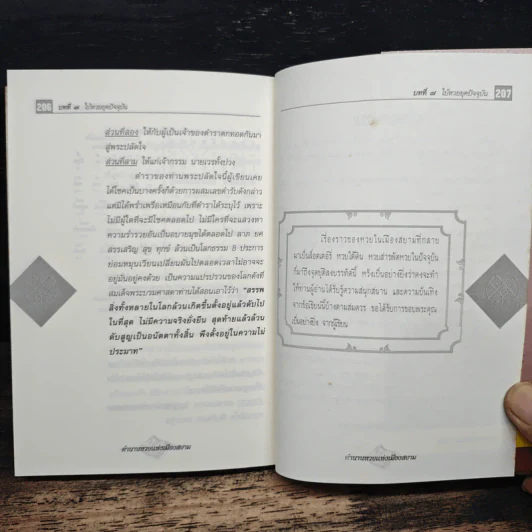 206 บทที่ ๗ ไปหวยยุคปัจจุบัน
ส่วนที่สอง ให้กับผู้เป็นเจ้าของตำราตกทอดกันมา
สู่พระปลัดใจ
ส่วนที่สาม ให้แก่เจ้ากรรม นายเวรทั้งปวง
ตำราของท่านพระปลัดใจนี้ผู้เขียนเคย
ได้โชคเป็นบางครั้งก็ด้วยการผสมเลขตำรับดังกล่าว
แต่มิได้พร่ำเพรื่อเหมือนกับที่ตำราได้ระบุไว้ เพราะ
ไม่มีผู้ใดที่จะมีโชคตลอดไป ไม่มีใครที่จะแสวงหา
ความร่ำรวยอันเป็นอบายมุขได้ตลอดไป ลาภ ยศ
สรรเสริญ สุข ทุกข์ ล้วนเป็นโลกธรรม 8 ประการ
ย่อมหมุนเวียนเปลี่ยนผันไปตลอดเวลาไม่อาจจะ
อยู่มั่นอยู่คงด้วย เป็นความแปรปรวนของโลกดังที่
สมเด็จพระบรมศาสดาท่านได้สอนเอาไว้ว่า "สรรพ
สิ่งทั้งหลายในโลกล้วนเกิดขึ้นตั้งอยู่แล้วดับไป
ในที่สุด ไม่มีความจริงยั่งยืน สุดท้ายแล้วล้วน
ดับสูญเป็นอนัตตาทั้งสิ้น พึงตั้งอยู่ในความไม่
ประมาท"
ตำนานหวยแห่งเมืองสยาม
บทที่ ๗ ไปหวยยุคปัจจุบัน 207
เรื่องราวของหวยในเมืองสยามที่กลาย
มาเป็นล็อตเตอรี่ หวยใต้ดิน หวยสารพัดหวยในปัจจุบัน
ก็มาถึงจุดยุติลงบรรทัดนี้ หวังเป็นอย่างยิ่งว่าคงจะทำ
ให้ท่านผู้อ่านได้รับรู้ความสนุกสนาน และความบันเทิง
จากข้อเขียนนี้บ้างตามสมควร ขอได้รับการขอบพระคุณ
เป็นอย่างยิ่ง จากผู้เขียน
ตำนานหวยแห่งเมืองสยาม